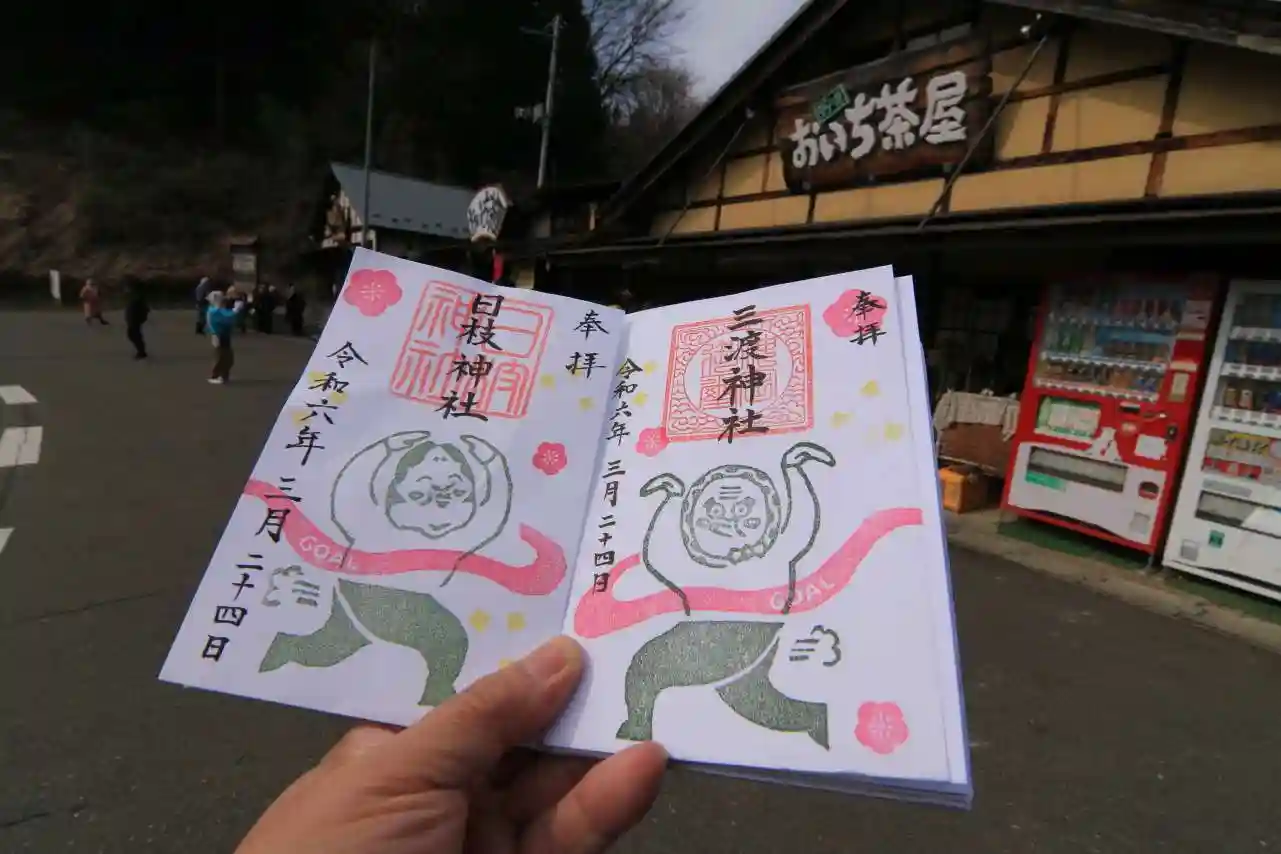 おいち茶屋
奉拝
三渡神社
令和六年 三月二十四日
GOAL
奉拝
日枝神社
日枝神社
令和六年 三月二十四日
GOAL